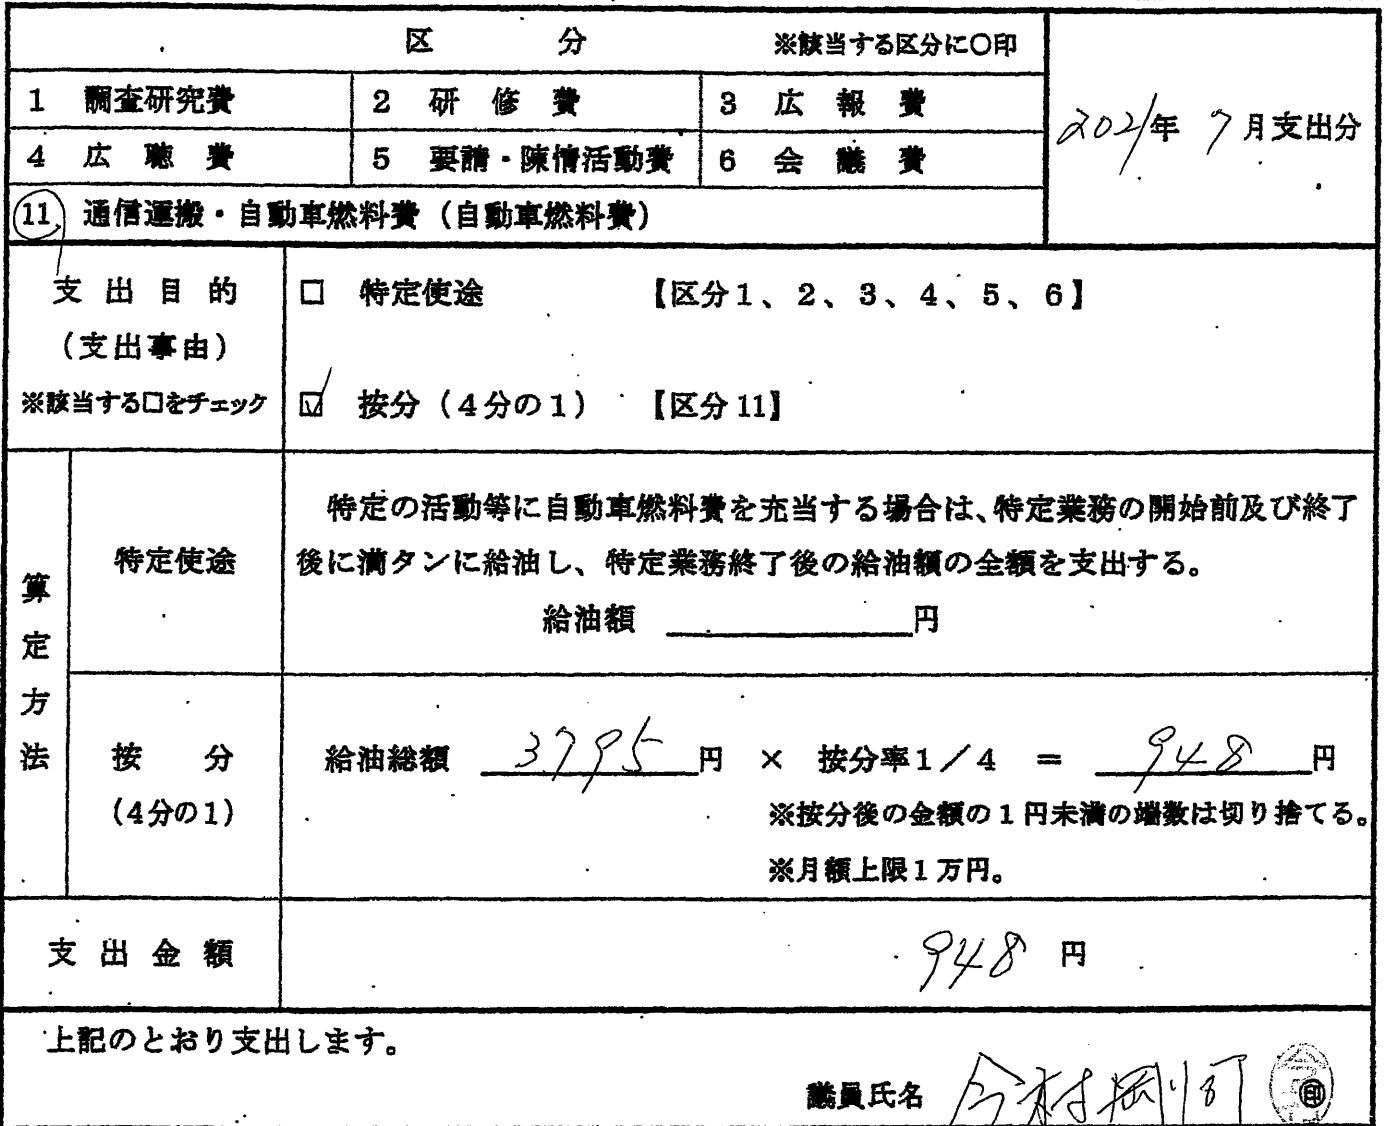 区 分 ※該当する区分に○印
1 調査研究費 2 研修費 3 広報費
2021年 7月支出分
4 広聴費 5 要請・陳情活動費 6 会議費
11 通信運搬・自動車燃料費（自動車燃料費）
支出目的
（支出事由）
※該当する□をチェック
□ 特定使途 【区分1、2、3、4、5、6】
☑ 按分（4分の1） 【区分11】
算定方法
特定使途
特定の活動等に自動車燃料費を充当する場合は、特定業務の開始前及び終了
後に満タンに給油し、特定業務終了後の給油額の全額を支出する。
給油額 円
按分
（4分の1）
給油総額 3795 円 × 按分率1／4 ＝ 948 円
※按分後の金額の1円未満の端数は切り捨てる。
※月額上限1万円。
支出金額 948 円
上記のとおり支出します。
議員氏名 今村剛司 印